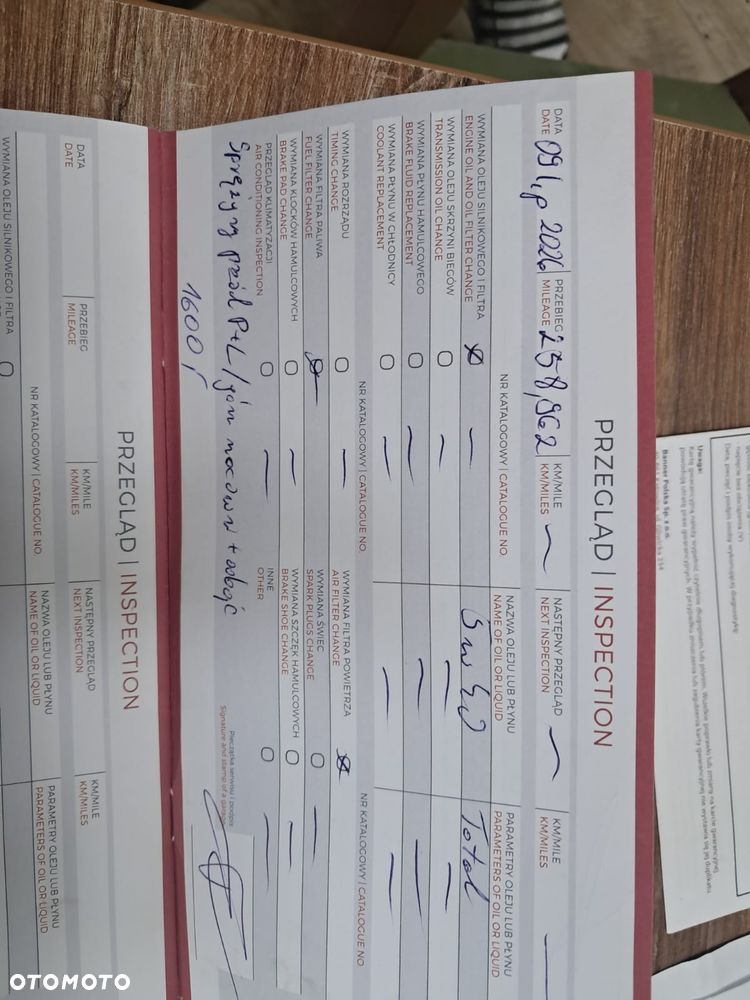 PRZEGLĄD | INSPECTION
DATA
DATE
2026
PRZEBIEG
MILEAGE
258,962
KM/MILE
KM/MILES
NASTĘPNY PRZEGLĄD
NEXT INSPECTION
KM/MILE
KM/MILES
NR KATALOGOWY | CATALOGUE NO.
NAZWA OLEJU LUB PŁYNU
NAME OF OIL OR LIQUID
PARAMETRY OLEJU LUB PŁYNU
PARAMETERS OF OIL OR LIQUID
WYMIANA OLEJU SILNIKOWEGO I FILTRA
ENGINE OIL AND OIL FILTER CHANGE
5W40
Total
WYMIANA OLEJU SKRZYNI BIEGÓW
TRANSMISSION OIL CHANGE
WYMIANA PŁYNU HAMULCOWEGO
BRAKE FLUID REPLACEMENT
WYMIANA PŁYNU W CHŁODNICY
COOLANT REPLACEMENT
NR KATALOGOWY | CATALOGUE NO.
NR KATALOGOWY | CATALOGUE NO.
WYMIANA ROZRZĄDU
TIMING CHANGE
WYMIANA FILTRA POWIETRZA
AIR FILTER CHANGE
WYMIANA FILTRA PALIWA
FUEL FILTER CHANGE
WYMIANA ŚWIEC
SPARK PLUGS CHANGE
WYMIANA KLOCKÓW HAMULCOWYCH
BRAKE PAD CHANGE
WYMIANA SZCZĘK HAMULCOWYCH
BRAKE SHOE CHANGE
PRZEGLĄD KLIMATYZACJI
AIR CONDITIONING INSPECTION
INNE
OTHER
Sprężyny przód P+L
1600,-
Pieczątka serwisu i podpis
Signature and stamp of a garage
PRZEGLĄD | INSPECTION
DATA
DATE
PRZEBIEG
MILEAGE
KM/MILE
KM/MILES
NASTĘPNY PRZEGLĄD
NEXT INSPECTION
KM/MILE
KM/MILES
NR KATALOGOWY | CATALOGUE NO.
NAZWA OLEJU LUB PŁYNU
NAME OF OIL OR LIQUID
PARAMETRY OLEJU LUB PŁYNU
PARAMETERS OF OIL OR LIQUID
WYMIANA OLEJU SILNIKOWEGO I FILTRA
Uwaga:
Banner Polska Sp. z o.o.
OTOMOTO